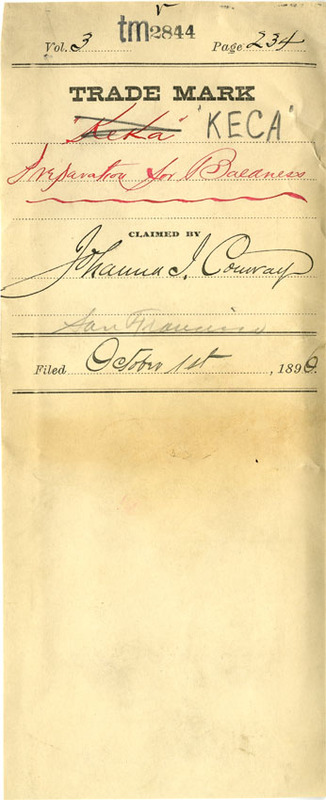 v
tm2844
Vol. 3 Page 234
TRADE MARK
"KeKa" "KECA"
Preparation for Baldness
CLAIMED BY
Johanna I. Conway
San Francisco
Filed October 1st, 1896.